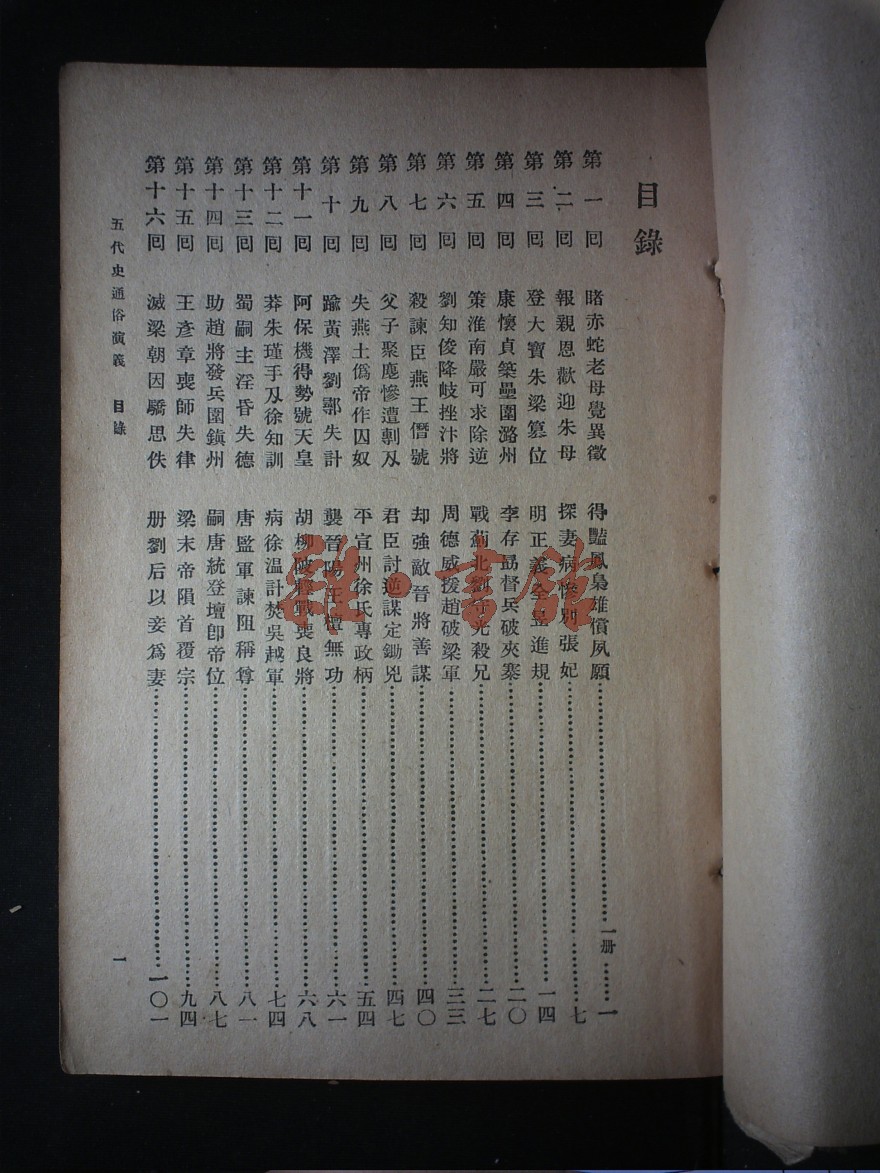 目錄
第一回 睹赤蛇老母覺異徵 得豔鳳梟雄償夙願 一册 一
第二回 報親恩歡迎朱母 探妻病慘別張妃 七
第三回 登大寶朱梁篡位 明正義全昱進規 一四
第四回 康懷貞築壘圍潞州 李存勗督兵破夾寨 二〇
第五回 策淮南嚴可求除逆 戰薊北劉守光殺兄 二七
第六回 劉知俊降岐挫汴將 周德威援趙破梁軍 三三
第七回 殺諫臣燕王僭號 却強敵晉將善謀 四〇
第八回 父子聚麀慘遭剚刃 君臣討逆謀定鋤兇 四七
第九回 失燕土僞帝作囚奴 平宣州徐氏專政柄 五四
第十回 踰黃澤劉鄩失計 襲晉陽王檀無功 六一
第十一回 阿保機得勢號天皇 胡柳破輕戰喪良將 六八
第十二回 莽朱瑾手刃徐知訓 病徐温計焚吳越軍 七四
第十三回 蜀嗣主淫昏失德 唐監軍諫阻稱尊 八一
第十四回 助趙將發兵圍鎭州 嗣唐統登壇卽帝位 八七
第十五回 王彥章喪師失律 梁末帝隕首覆宗 九四
第十六回 滅梁朝因驕思佚 册劉后以妾爲妻 一〇一
五代史通俗演義 目錄 一
雜·書館